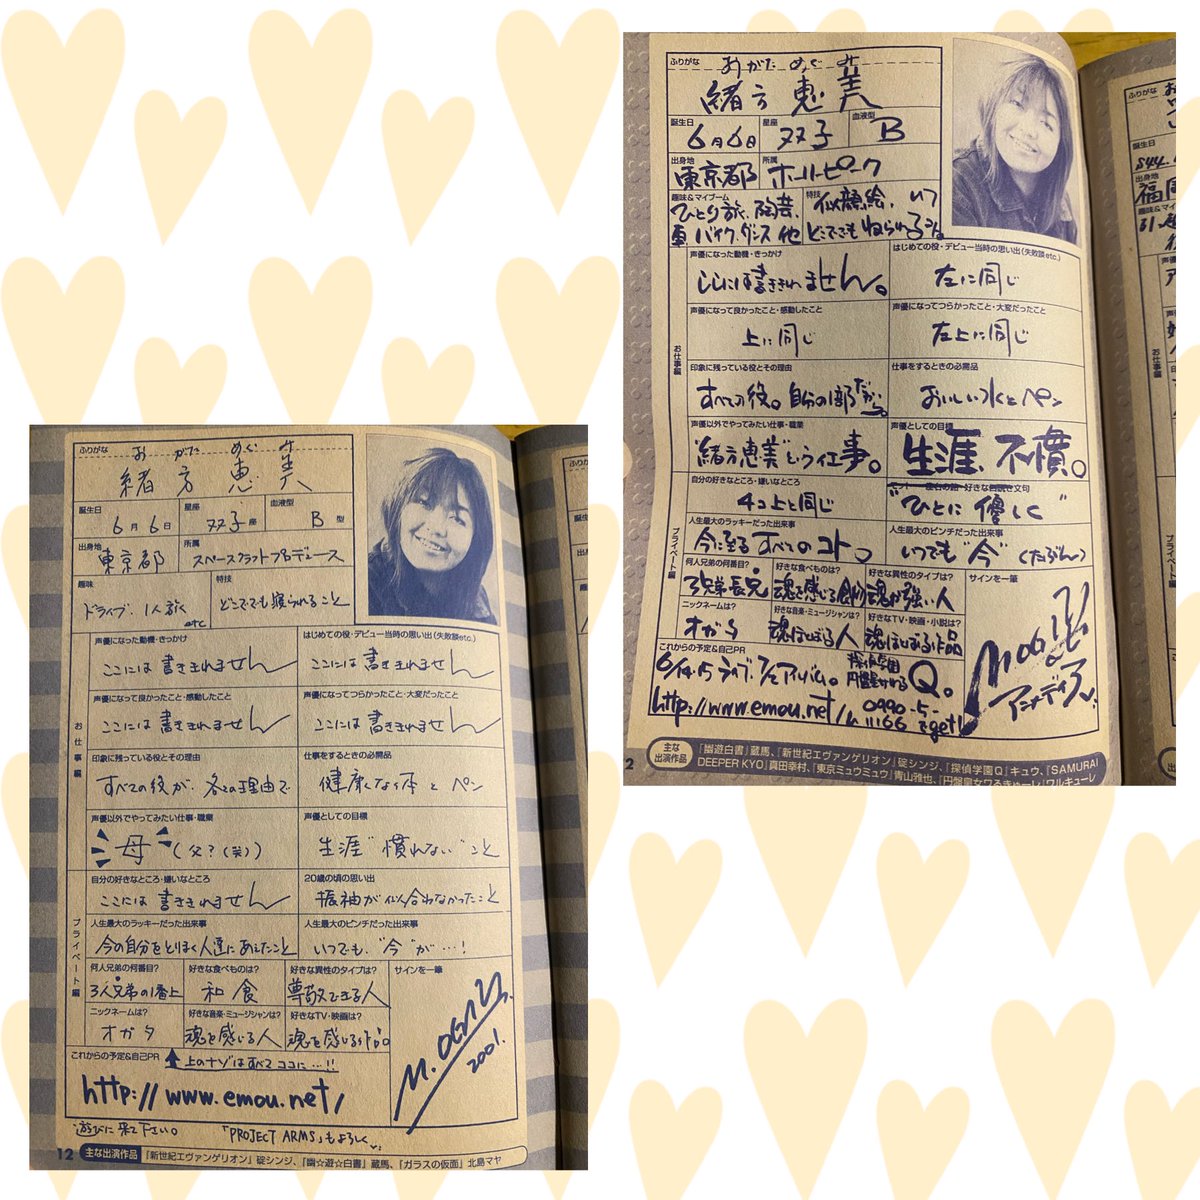 ふりがな おがた めぐみ
緒方 恵美
誕生日 6月6日 星座 双子座 血液型 B型
出身地 東京都 所属 スペースクラフトプロデュース
趣味 ドライブ、1人旅 etc 特技 どこででも寝られること
お仕事編
声優になった動機・きっかけ はじめての役・デビュー当時の思い出(失敗談etc.)
ここには書ききれません ここには書ききれません
声優になって良かったこと・感動したこと 声優になってつらかったこと・大変だったこと
ここには書ききれません ここには書ききれません
印象に残っている役とその理由 仕事をするときの必需品
すべての役が、各々の理由で 健康なく本とペン
声優以外でやってみたい仕事・職業 声優としての目標
母(父?(笑)) 生涯"慣れない"こと
プライベート編
自分の好きなところ・嫌いなところ 20歳の頃の思い出
ここには書ききれません 振袖が似合わなかったこと
人生最大のラッキーだった出来事 人生最大のピンチだった出来事
今の自分をとりまく人達にあえたこと いつでも、"今"が…!
何人兄弟の何番目? 好きな食べものは? 好きな異性のタイプは? サインを一筆
3人兄弟の1番上 和食 尊敬できる人
ニックネームは? 好きな音楽・ミュージシャンは? 好きなTV・映画は?
オガタ 魂を感じる人 魂を感じる作品
M.OGATA 2001.
これからの予定&自己PR 上のナゾはすべてココに…!!
http://www.emou.net/
遊びに来て下さい。 「PROJECT ARMS」もよろしく
12 主な出演作品 『新世紀エヴァンゲリオン』碇シンジ、『幽☆遊☆白書』蔵馬、『ガラスの仮面』北島マヤ
ふりがな おがた めぐみ
緒方 恵美
誕生日 6月6日 星座 双子 血液型 B
出身地 東京都 所属 ホーリーピーク
趣味&マイブーム ひとり旅、陶芸、車、バイク、ダンス他
特技 似顔絵、いつどこででもねられるコト。
お仕事編
声優になった動機・きっかけ はじめての役・デビュー当時の思い出(失敗談etc.)
ここには書ききれません。 左に同じ
声優になって良かったこと・感動したこと 声優になってつらかったこと・大変だったこと
上に同じ 左上に同じ
印象に残っている役とその理由 仕事をするときの必需品
すべての役。自分の1部だから。 おいしい水とペン
声優以外でやってみたい仕事・職業 声優としての目標
"緒方恵美"という仕事。 生涯、不慣。
プライベート編
自分の好きなところ・嫌いなところ 好きな
4コ上と同じ "ひとに優しく"
人生最大のラッキーだった出来事 人生最大のピンチだった出来事
今に至るすべてのコト。 いつでも"今"(たぶん)
何人兄弟の何番目? 好きな食べものは? 好きな異性のタイプは? サインを一筆
3兄弟長兄 魂を感じる 魂が強い人
ニックネームは? 好きな音楽・ミュージシャンは? 好きなTV・映画・小説は?
オガタ 魂ほとばしる人 魂ほとばしる作品
アニメディア
これからの予定&自己PR
6/14・15ライブ、アルバム。探偵学園Q。
http://www.emou.net/ 0990-5-
2 主な出演作品 『幽遊白書』蔵馬、『新世紀エヴァンゲリオン』碇シンジ、『探偵学園Q』キュウ、『SAMURAI
DEEPER KYO』真田幸村、『東京ミュウミュウ』青山雅也、『円盤皇女ワるきゅーレ』ワルキューレ
ふりがな
誕生日
S44.
出身地
福
趣味&マイ